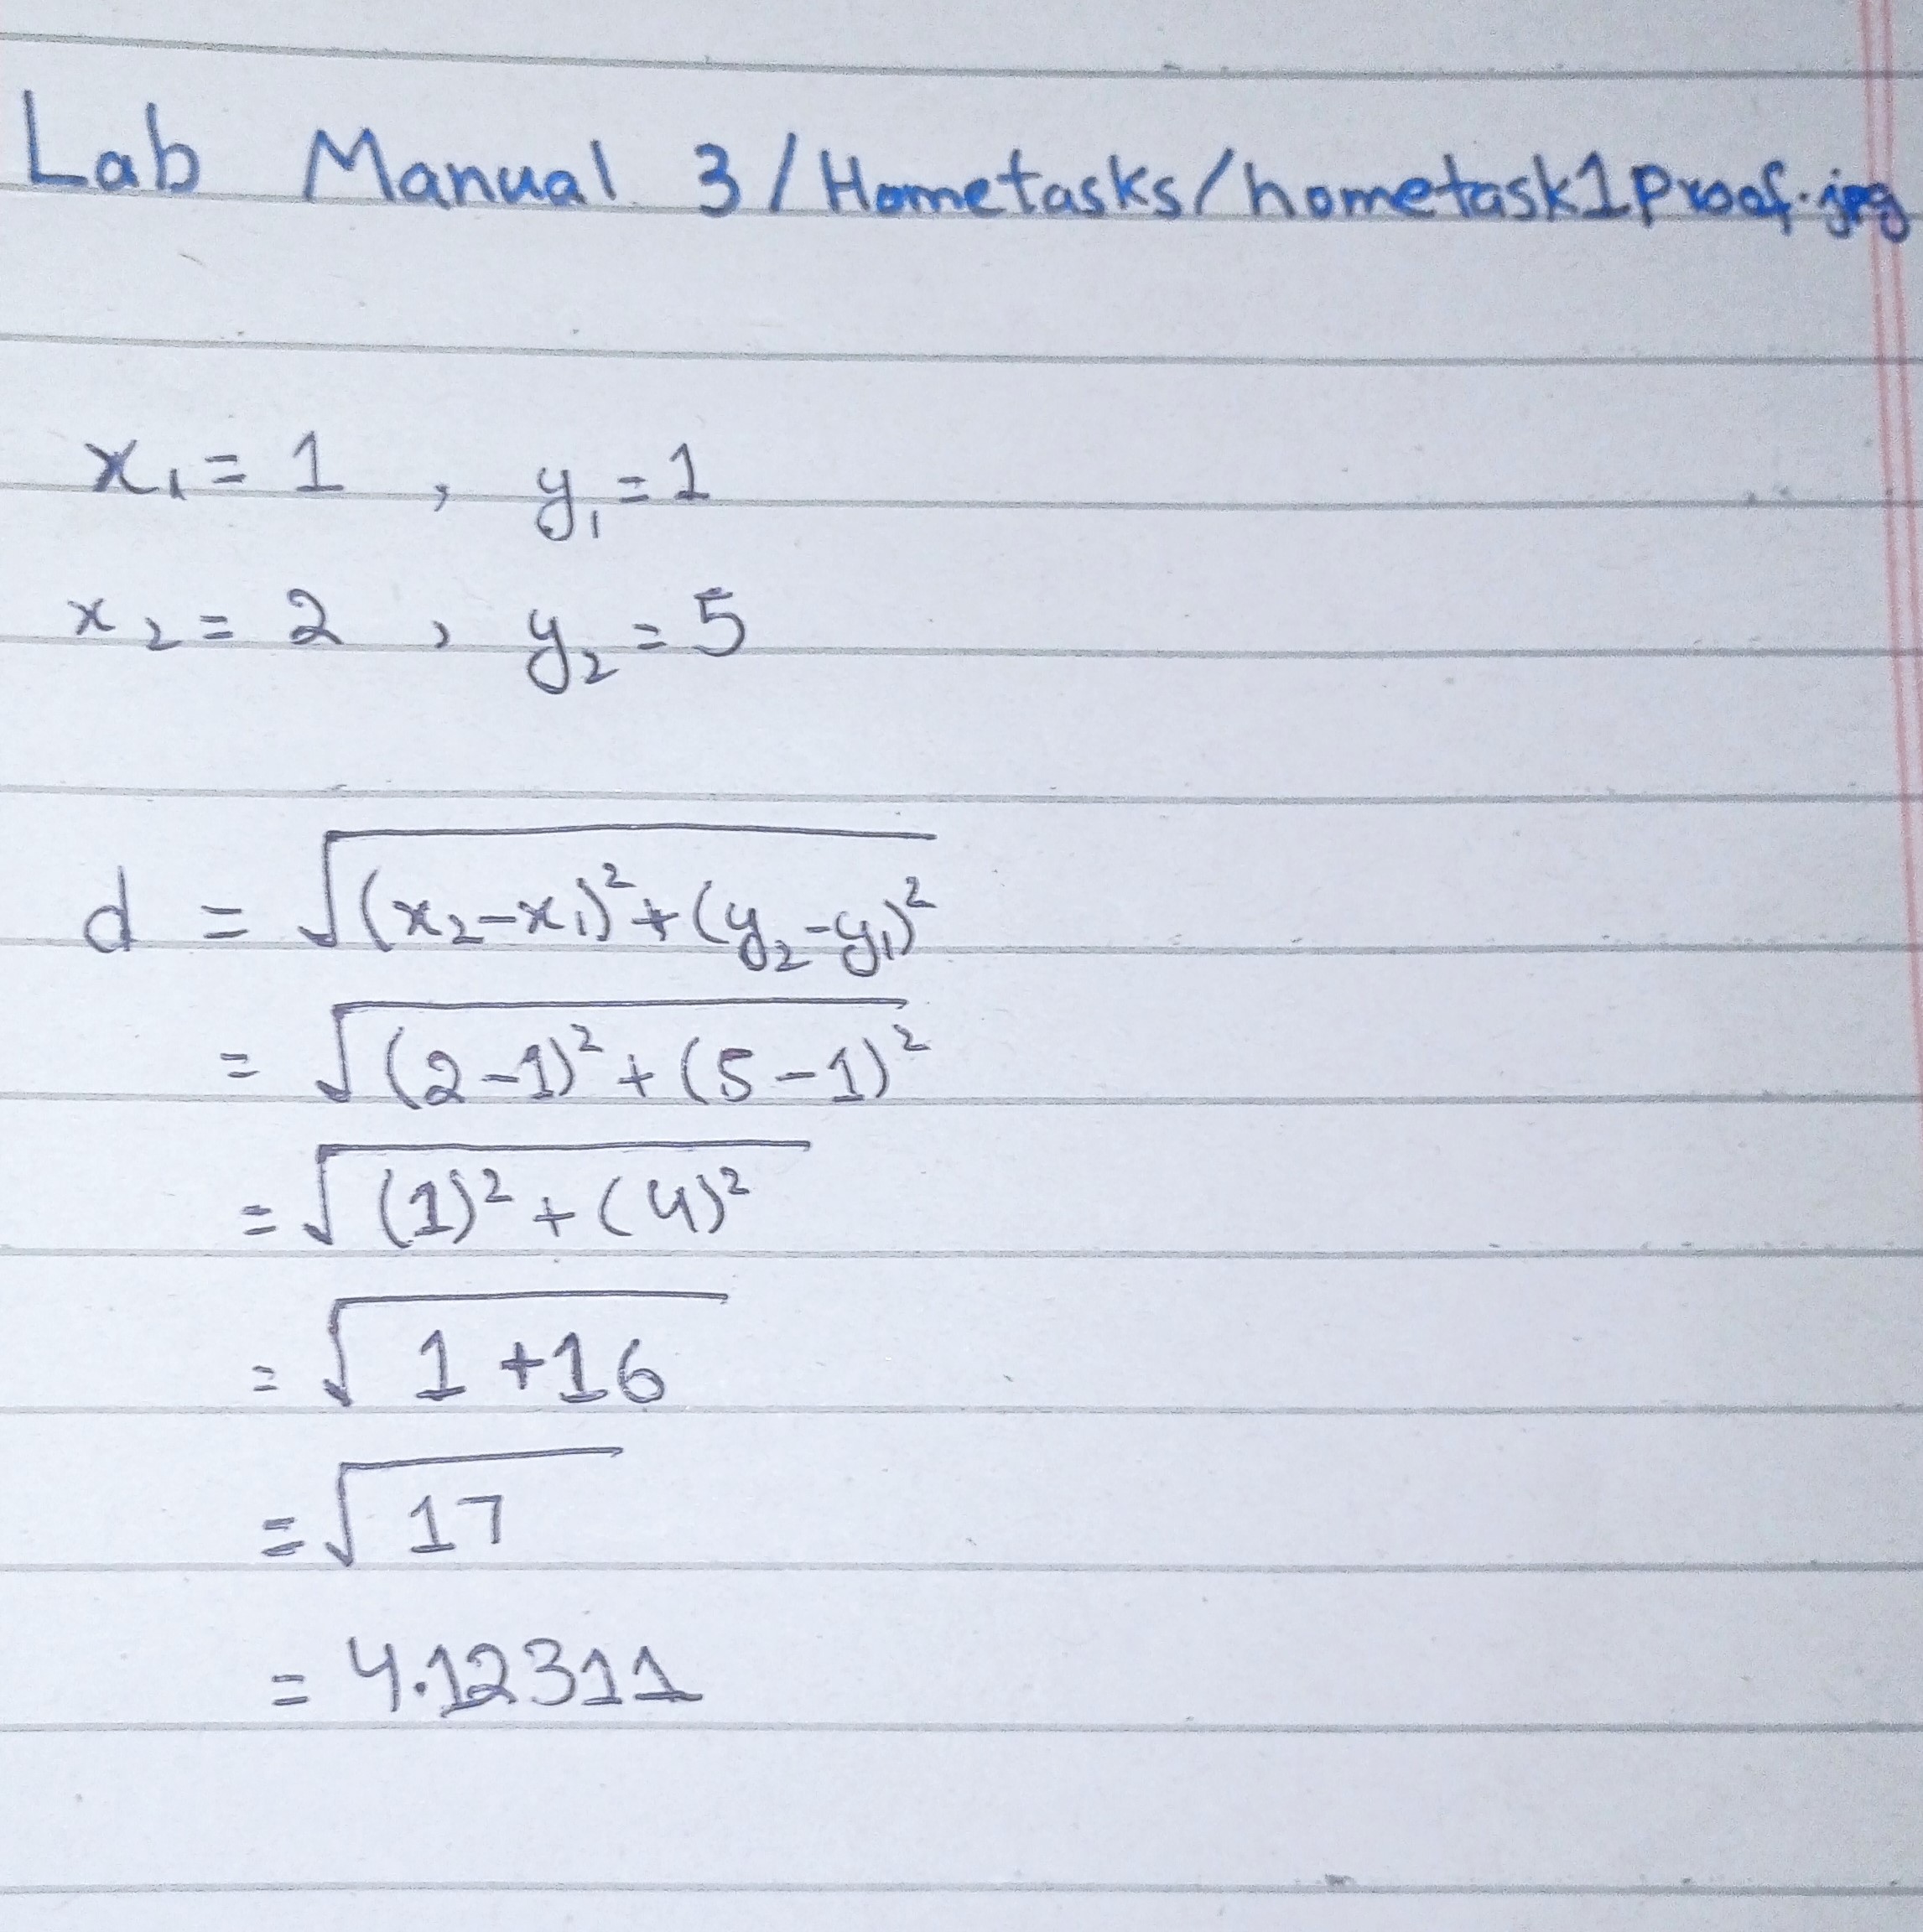 Lab Manual 3/Hometasks/hometask1Proof.jpg
x₁ = 1 , y₁ = 1
x₂ = 2 , y₂ = 5
d = √((x₂-x₁)² + (y₂-y₁)²)
= √((2-1)² + (5-1)²)
= √((1)² + (4)²)
= √(1+16)
= √17
= 4.12311